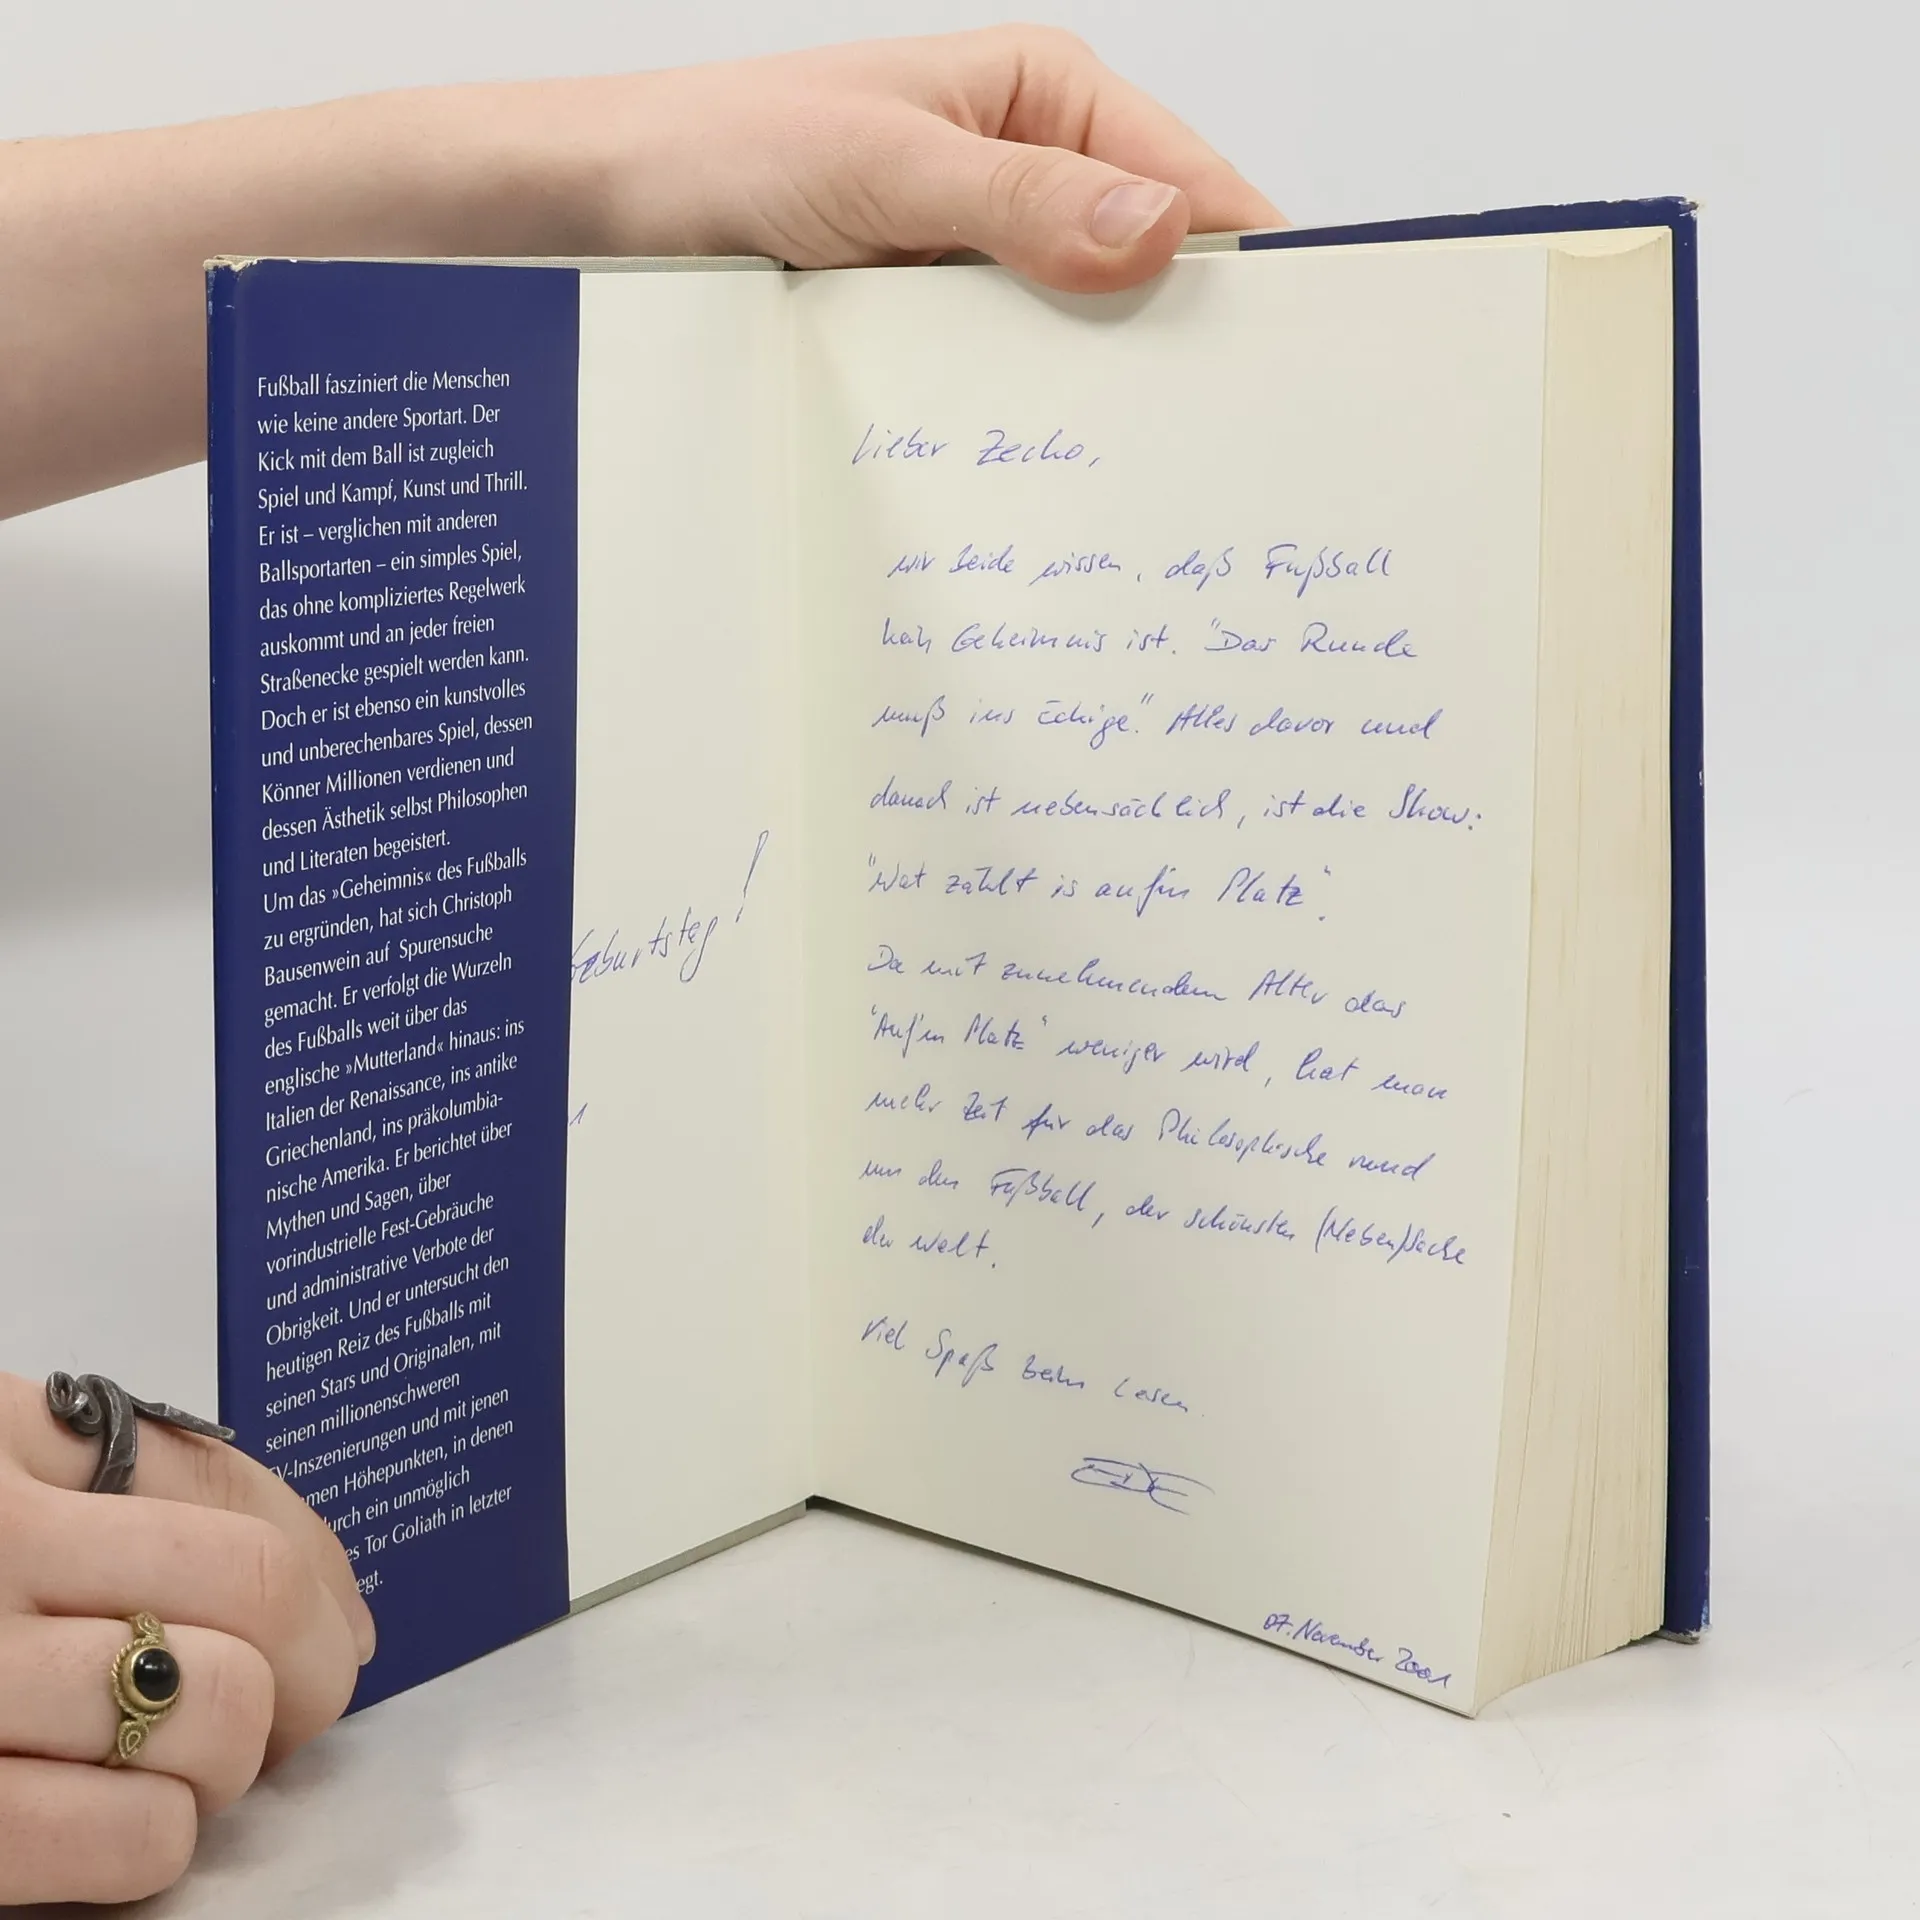 Fußball fasziniert die Menschen
wie keine andere Sportart. Der
Kick mit dem Ball ist zugleich
Spiel und Kampf, Kunst und Thrill.
Er ist – verglichen mit anderen
Ballsportarten – ein simples Spiel,
das ohne kompliziertes Regelwerk
auskommt und an jeder freien
Straßenecke gespielt werden kann.
Doch er ist ebenso ein kunstvolles
und unberechenbares Spiel, dessen
Könner Millionen verdienen und
dessen Ästhetik selbst Philosophen
und Literaten begeistert.
Um das »Geheimnis« des Fußballs
zu ergründen, hat sich Christoph
Bausenwein auf Spurensuche
gemacht. Er verfolgt die Wurzeln
des Fußballs weit über das
englische »Mutterland« hinaus: ins
Italien der Renaissance, ins antike
Griechenland, ins präkolumbia-
nische Amerika. Er berichtet über
Mythen und Sagen, über
vorindustrielle Fest-Gebräuche
und administrative Verbote der
Obrigkeit. Und er untersucht den
heutigen Reiz des Fußballs mit
seinen Stars und Originalen, mit
seinen millionenschweren
TV-Inszenierungen und mit jenen
men Höhepunkten, in denen
urch ein unmöglich
es Tor Goliath in letzter
egt.
Geburtstag!
Lieber Zecho,
wir beide wissen, daß Fußball
kein Geheimnis ist. "Das Runde
muß ins Eckige". Alles davor und
danach ist nebensächlich, ist die Show:
"Wat zählt is auf'm Platz".
Da mit zunehmendem Alter das
"Auf'm Platz" weniger wird, hat man
mehr Zeit für das Philosophische rund
um den Fußball, der schönsten (Neben)Sache
der Welt.
Viel Spaß beim Lesen.
EDE
07. November 2001